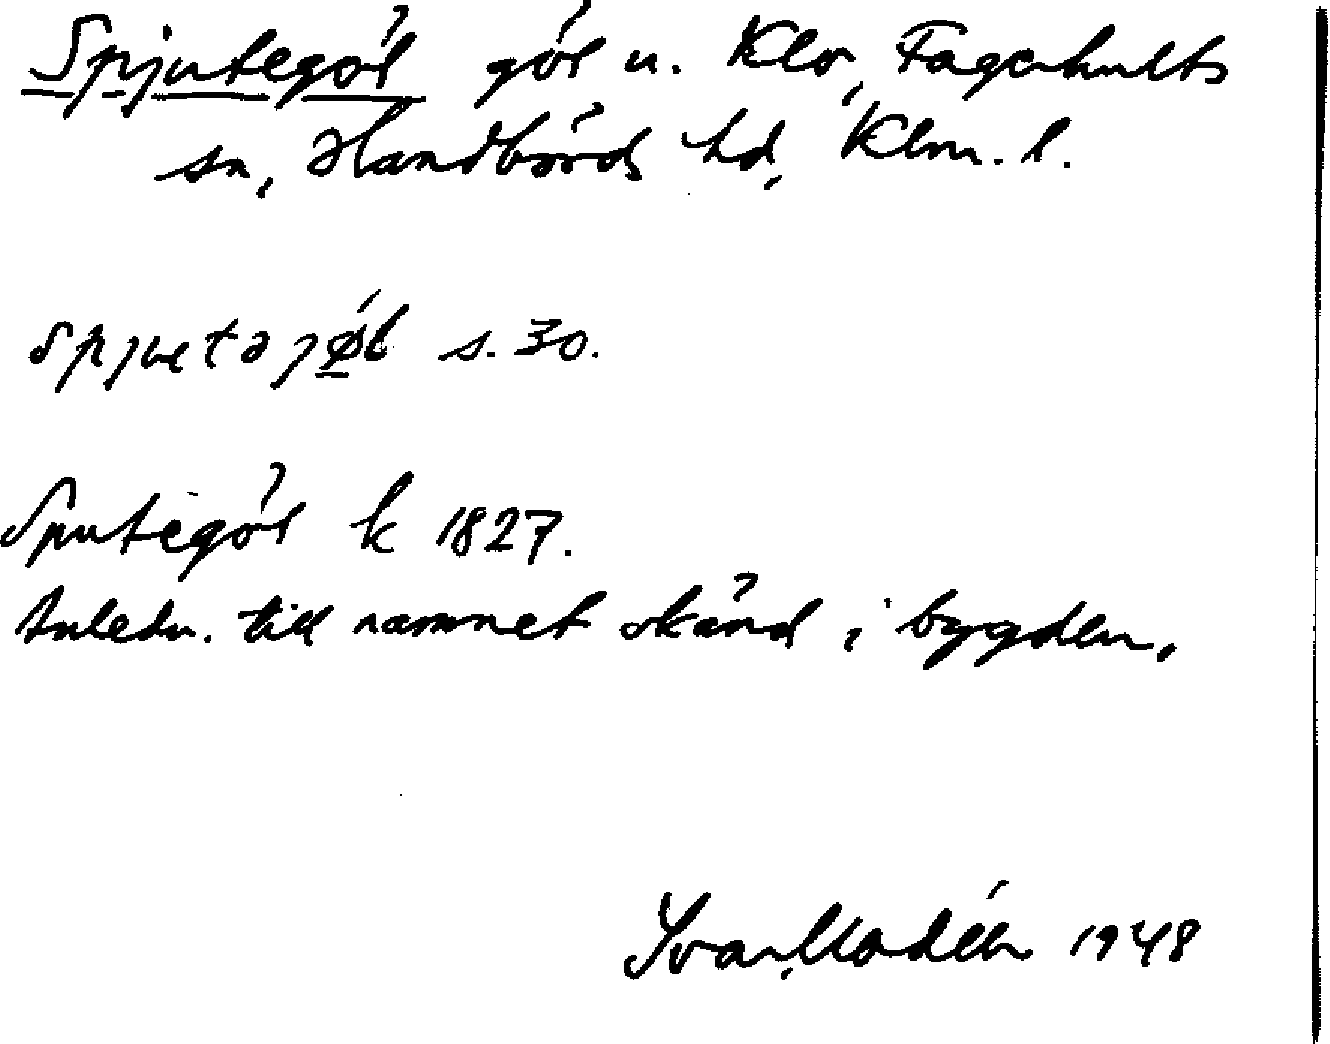 Spjutegöl göl u. Klo, Fagerhults
sn, Handbörds hd, Klm. l.
spjutəjǿ̱l s. 30.
Sputegöl k 1827.
Anledn. till namnet okänd i bygden.
Ivar Modéer 1948